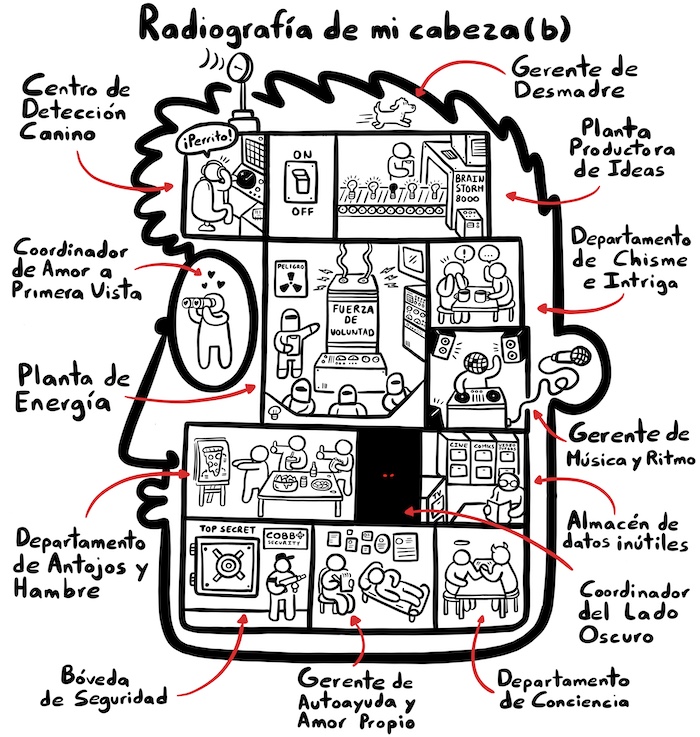 Radiografía de mi cabeza(b)
Centro de
Detección
Canino
Gerente de
Desmadre
¡Perrito!
ON
OFF
BRAIN
STORM
8000
Planta
Productora
de Ideas
Coordinador
de Amor a
Primera Vista
PELIGRO
FUERZA
DE
VOLUNTAD
Departamento
de Chisme
e Intriga
Planta de
Energía
Gerente de
Música y Ritmo
CINE
COMICS
VIDEO
TV
Departamento
de Antojos y
Hambre
Almacén de
datos inútiles
TOP SECRET
COBB
SECURITY
Coordinador
del Lado
Oscuro
Bóveda
de Seguridad
Gerente de
Autoayuda y
Amor Propio
Departamento
de Conciencia